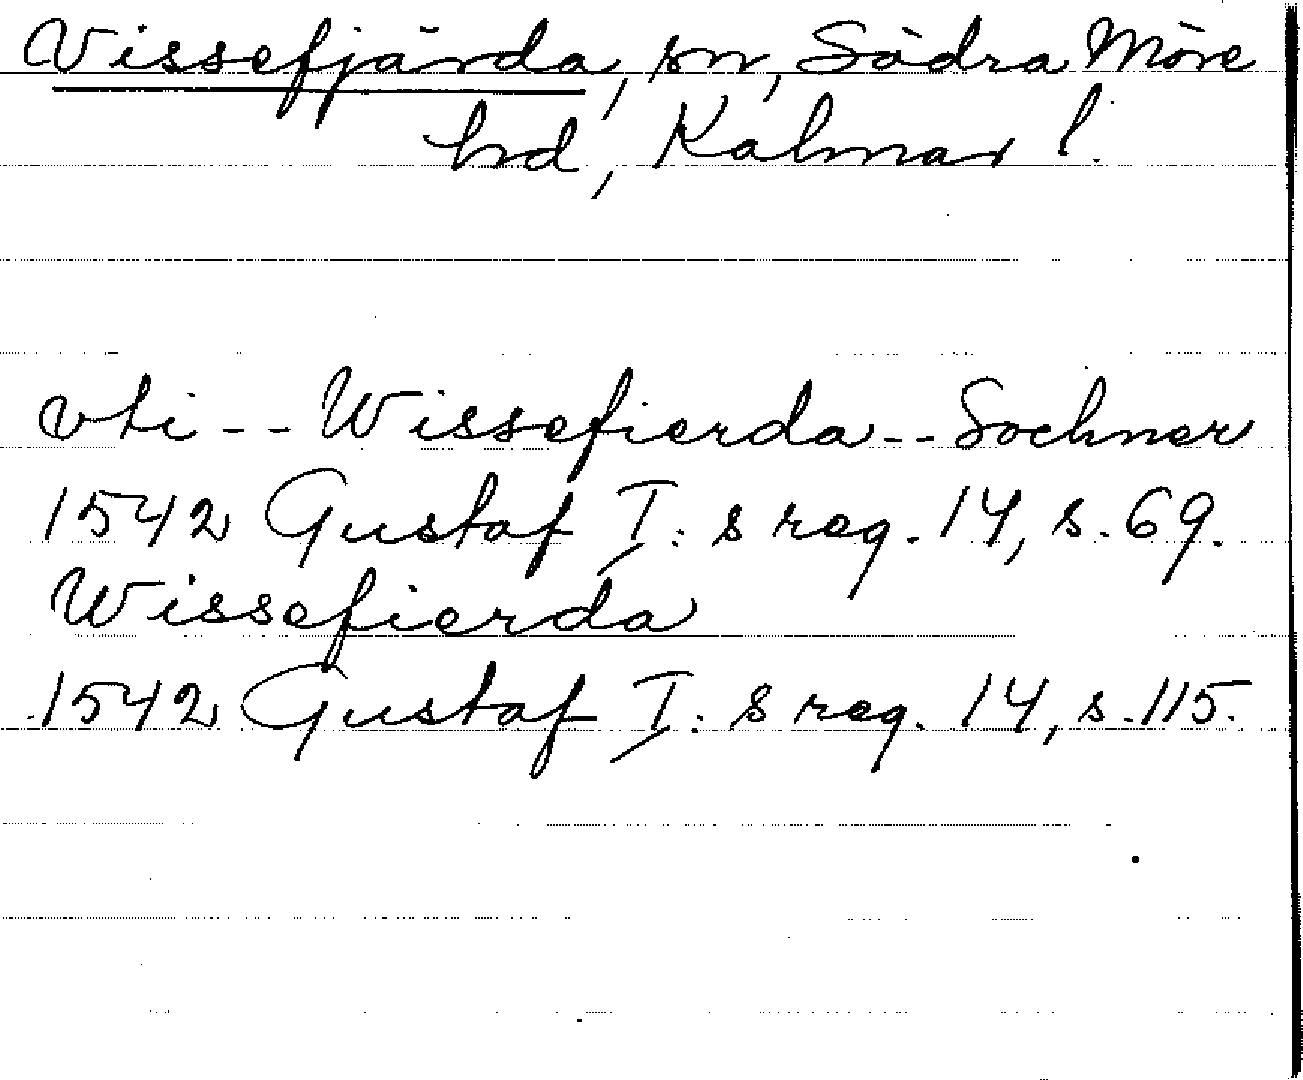 Vissefjärda, sn, Södra Möre
hd, Kalmar l.
vti -- Wissefierda -- Sochner
1542 Gustaf I: s reg. 14, s. 69.
Wissefierda
1542 Gustaf I: s reg. 14, s. 115.